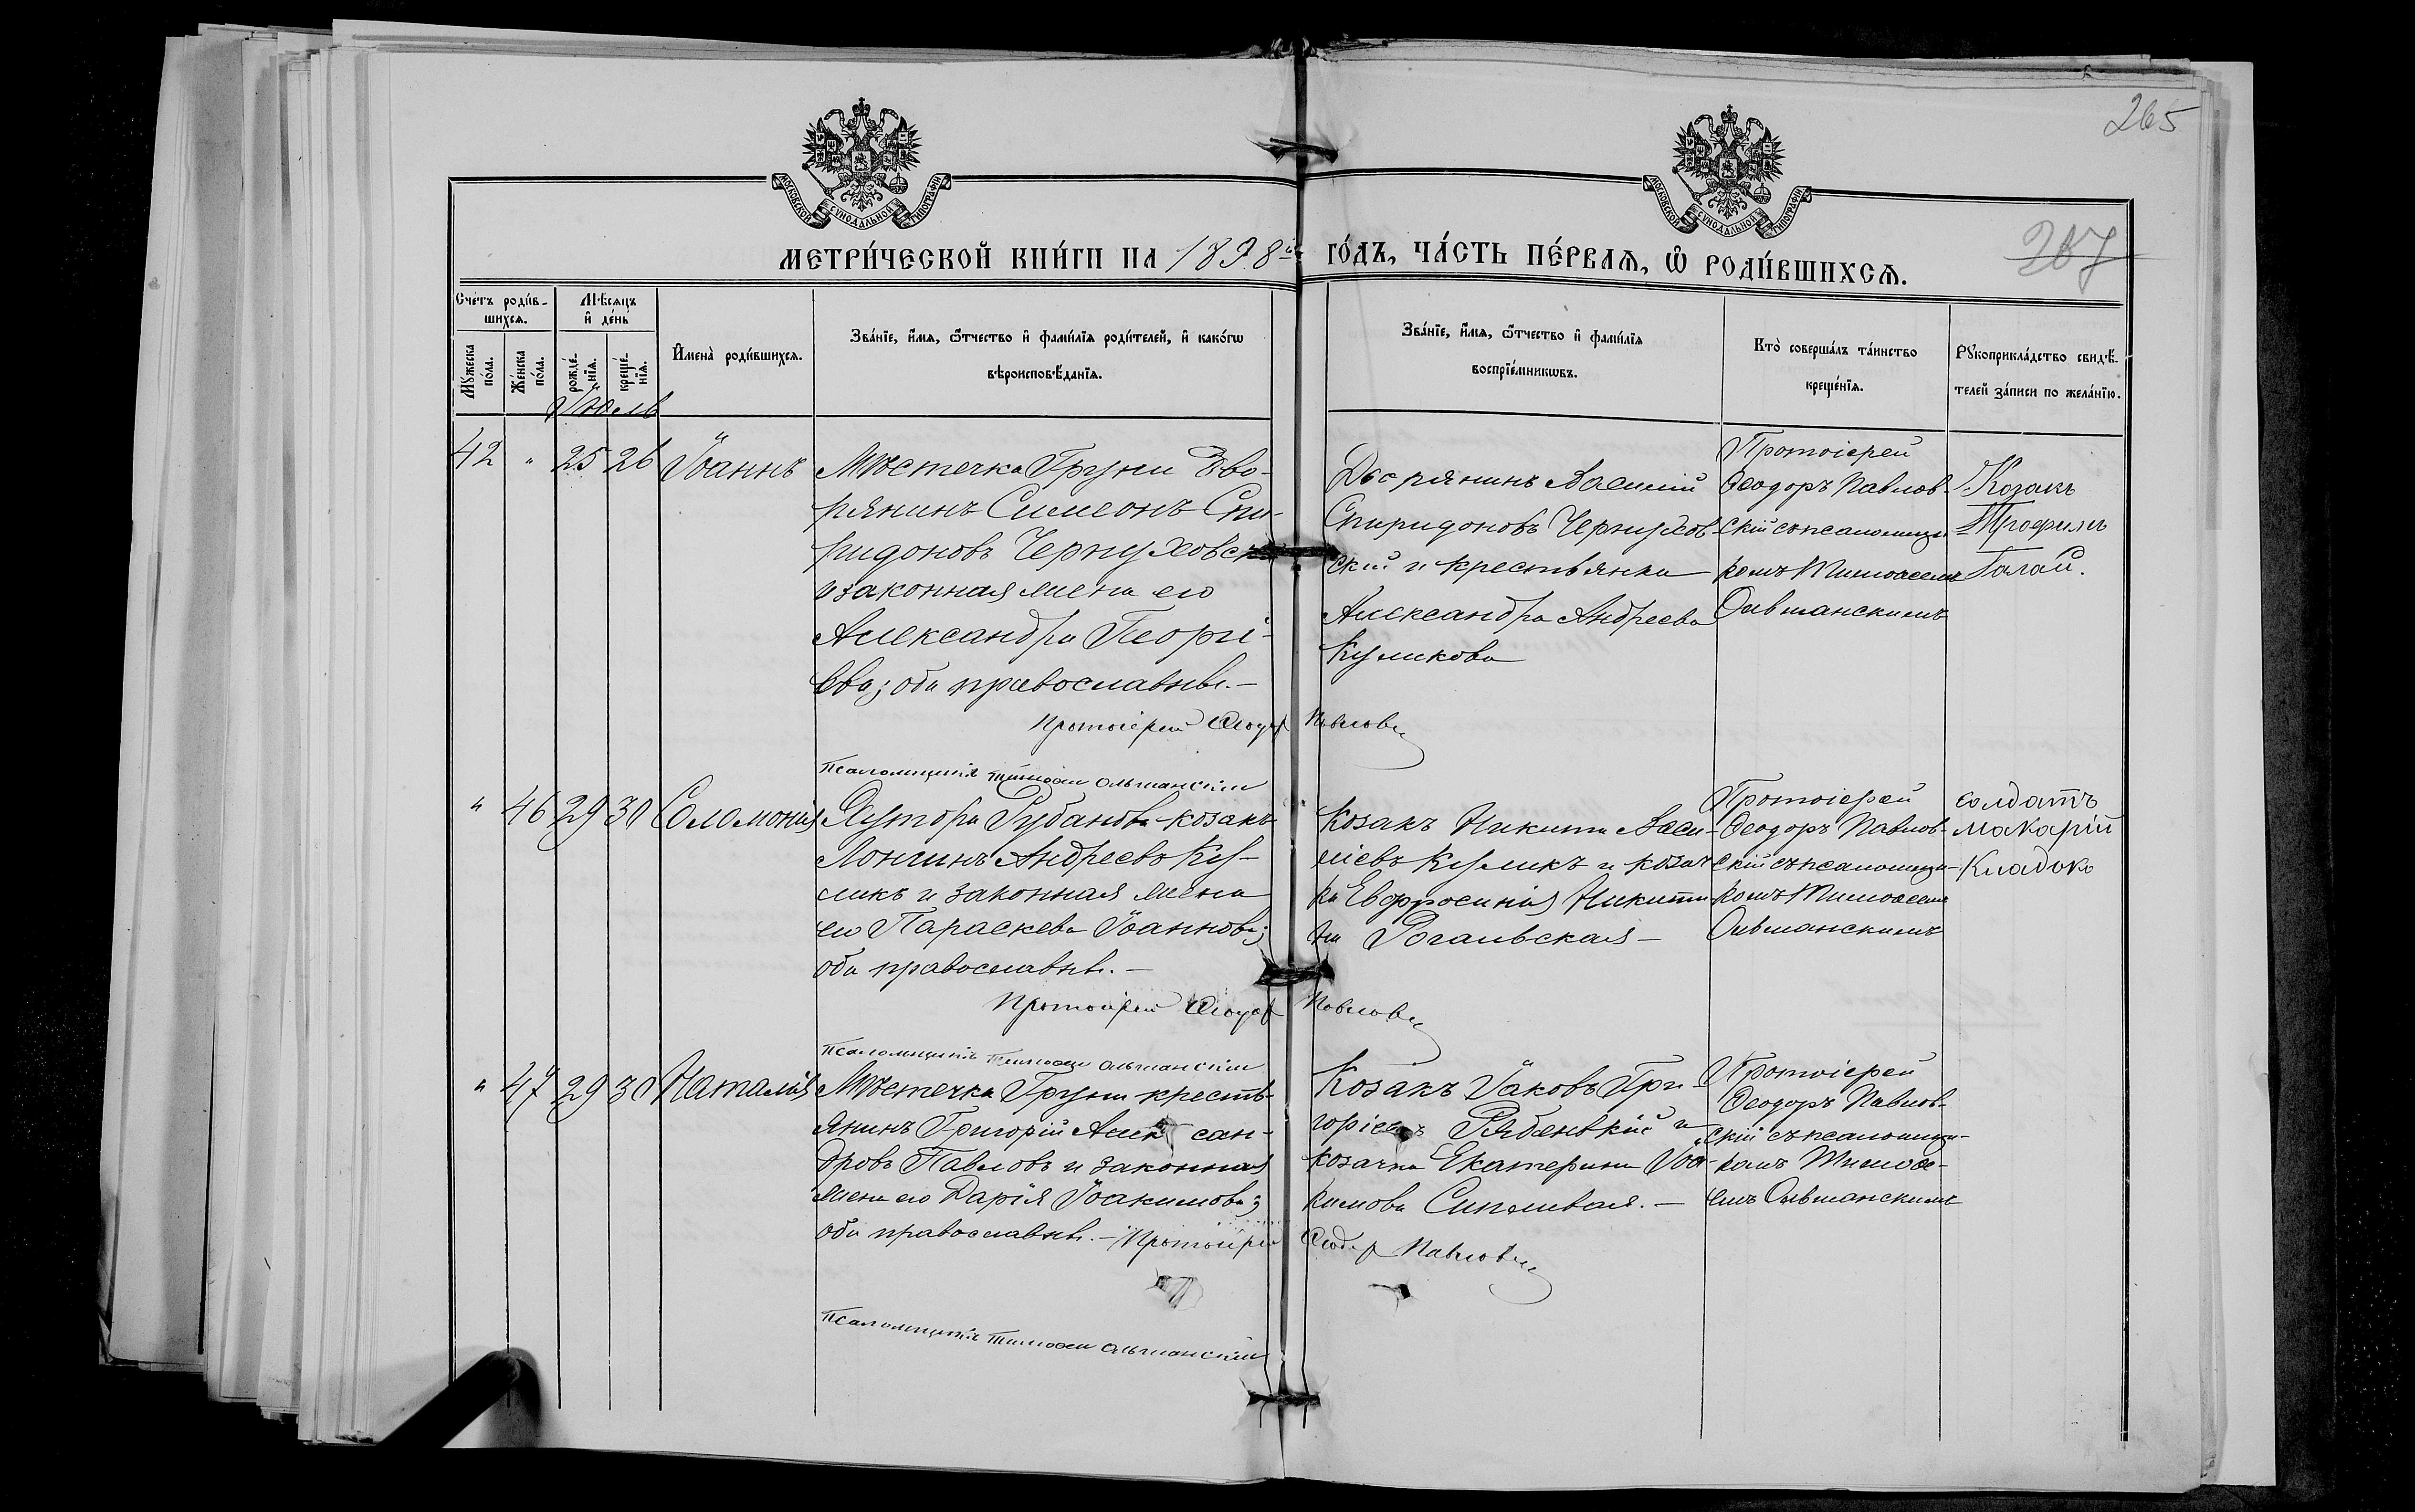 265
МОСКОВСКОЙ СѴНОДАЛЬНОЙ ТИПОГРАФІИ
МОСКОВСКОЙ СѴНОДАЛЬНОЙ ТИПОГРАФІИ
МЕТРИ́ЧЕСКОЙ КНИ́ГИ НА 1898й ГО́ДЪ, ЧА́СТЬ ПЕ́РВАѦ, Ѡ҆ РОДИ́ВШИХСѦ.
267
Сче́тъ роди́в-
шихсѧ.
Мѣ́сѧцъ
и҆ де́нь
Мꙋ́жеска
по́ла.
Же́нска
по́ла.
рожде́-
нїѧ.
креще́-
нїѧ.
И҆мена̀ роди́вшихсѧ.
Зва́нїе, и҆́мѧ, ѻ҆́тчество и҆ фами́лїѧ роди́телей, и҆ како́гѡ
вѣроисповѣ́данїѧ.
Зва́нїе, и҆́мѧ, ѻ҆́тчество и҆ фами́лїѧ
воспрїе́мникѡвъ.
Кто̀ соверша́лъ та́инство
креще́нїѧ.
Рꙋкоприкла́дство свидѣ́-
телей за́писи по жела́нїю.
Іюль
42 " 25 26 Іоаннъ
Мѣстечка Груни Дво-
рянинъ Симеонъ Спи-
ридоновъ Чернуховскій
и законная жена его
Александра Георгі-
ева; оба православные.-
Дворянинъ Василій
Спиридоновъ Чернухов-
скій и крестьянка
Александра Андреева
Куликова
Протоіерей
Ѳеодоръ Павлов-
скій съ псаломщи-
комъ Тимоѳеемъ
Ольшанскимъ
Козакъ
Трофимъ
Галай.
Протоіерей Ѳеодор Павловск
Псаломщикъ Тимоѳей Ольшанскій
" 46 29 30 Соломонія
Хутора Рубанова козакъ
Лонгинъ Андреевъ Ку-
ликъ и законная жена
его Параскева Іоаннова;
оба православные.-
Козакъ Никита Васи-
ліевъ Куликъ и козач-
ка Евфросинія Никити-
на Рогальская-
Протоіерей
Ѳеодоръ Павлов-
скій съ псаломщи-
комъ Тимоѳеемъ
Ольшанскимъ
солдатъ
Макарій
Кладько
Протоіерей Ѳеодор Павловск
Псаломщикъ Тимоѳей Ольшанскій
" 47 29 30 Наталія
Мѣстечка Груни кресть-
янинъ Григорій Алек сан-
дровъ Павловъ и законная
жена его Дарія Іоакимова;
оба православные.-
Козакъ Іаковъ Гри-
горіевъ Рябенькій и
козачка Екатерина Іоа-
кимова Сипливая.-
Протоіерей
Ѳеодоръ Павлов-
скій съ псаломщи-
комъ Тимоѳе-
емъ Ольшанскимъ
Протоіерей Ѳеодор Павловск
Псаломщикъ Тимоѳей Ольшанскій